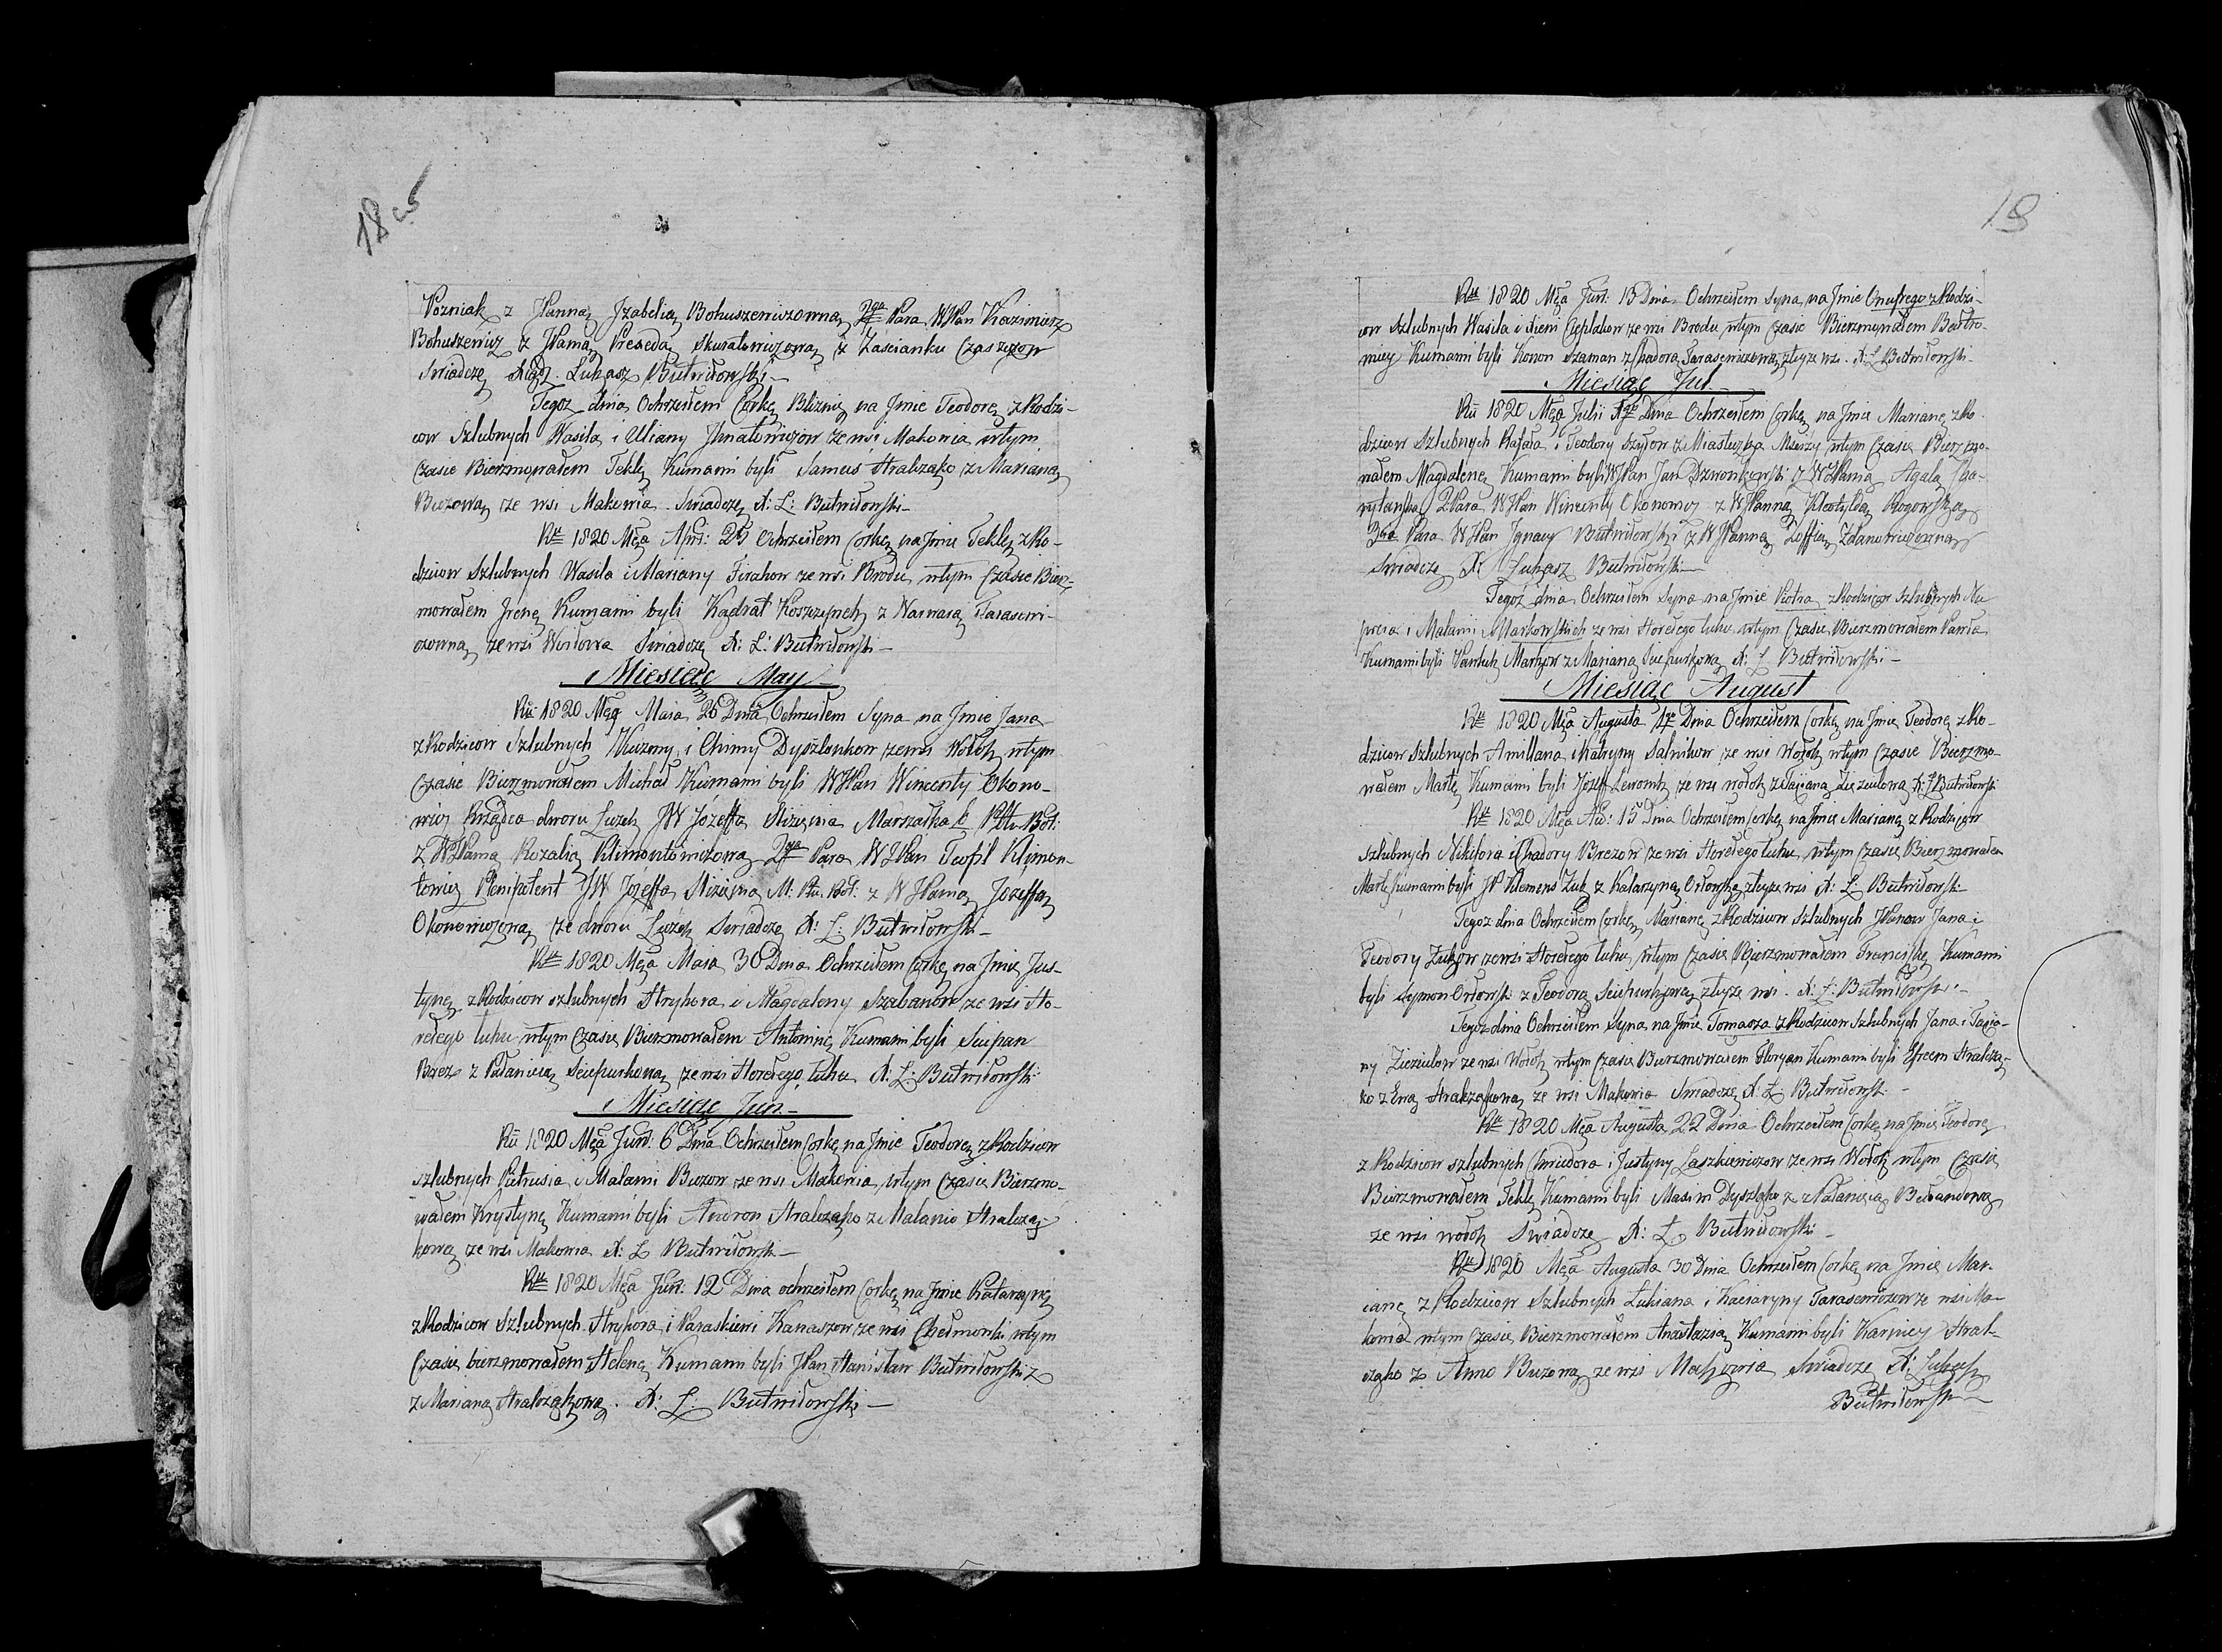 18 об
Pozniak z Panną Jzabelią Bohuszewiczowną 2ga Para WPan Kazimierz
Bohuszewicz z JPanią Skuratowiczową z Zascianku
Swiadczę Łukasz Butwiłowski
Tegoz dnia Ochrzciłem Corkę na Jmie Teodorę z Rodzi-
cow Szlubnych Wasila i Uliany Jhnatowiczow ze wsi Makowia wtym
czasie Bierzmowałem Teklę Kumami byli Hralczako z Marianą
ze wsi Makowia Swiadczę X: Ł: Butwiłowski
Ru 1820 Mca Apr: 25 Ochrzciłem Corkę na Jmie Teklę z Ro-
dzicow Szlubnych Wasila i Mariany ze wsi Brodu wtym Czasie Bierz-
mowałem Jrenę Kumami byli z Tarasewi-
czowną ze wsi Swiadczę X: Ł: Butwiłowski
Miesiąc May
Ru 1820 Mca Maia 26 Dnia Ochrzciłem Syna na Jmie Jana
z Rodzicow Szlubnych Kuzmy i Chimy Dyszlonkow ze wsi Wołok wtym
Czasie Bierzmowałem Michał Kumami byli WPan Wincenty Okono-
wicz Rządca dworu JW Józeffa Slizienia Marszałka
z WJPanią Rozalią Klimontowiczową 2ga Para WJPan Teofil Klimon-
towicz Plenipotent JW Józeffa Slizienia z WJPanią Jozeffą
Okonowiczową ze dworu Swiadczę X: Ł: Butwiłowski
Ru 1820 Mca Maia 30 Dnia Ochrzciłem Corkę na Jmie Jus-
tynę z Rodzicow szlubnych Hryhora i Magdaleny Szabanow ze wsi Ho-
rełego luhu wtym czasie Bierzmowałem Antoninę Kumami byli Sciepan
Brez z Sciepurkową ze wsi Horełego Luhu X: Ł: Butwiłowski
Miesiąc Jun
Ru 1820 Mca Jun: 6 Dnia Ochrzciłem Corkę na Jmie Teodorę z Rodzicow
szlubnych Pietrusia i Małanii ze wsi Makowia wtym czasie Bierzmo-
wałem Krystynę Kumami byli Andron Hralczako z Malanio Hralcza-
kową ze wsi Makowia X: Ł Butwiłowski
Ru 1820 Mca Jun: 12 Dnia ochrzciłem Corkę na Jmie Katarzynę
z Rodzicow Szlubnych Hryhora i Paraskiewi Kanaszow ze wsi wtym
Czasie bierzmowałem Helenę Kumami byli JPan Stanisław Butwiłowski z
z Marianą Hralczakową. X: Ł: Butwiłowski
18
Ru 1820 Mca Jun: 13 Dnia Ochrzciłem Syna na Jmie Onufrego z Rodzi-
cow szlubnych Wasila i Cieplakow ze wsi Brodu wtym czasie Bierzmowałem Bartło-
miey Kumami byli Konon Szaman z Chadorą Tarasewiczową zteyze wsi. X: Ł Butwiłowski
Miesiąc Jul.
Ru 1820 Mca Julii 1go Dnia Ochrzciłem Corkę na Jmie Marianę z Ro-
dzicow Szlubnych Rafała i Teodory Szydow z Miasteczka wtym Czasie Bierzmo-
wałem Magdalenę Kumami byli WJPan Jan Dzwonkowski z WJPanią Agatą
2 Para WJPan Wincenty Okonowicz z WJPanną Kleotyldą Rogowską
3cia Para WJPan Jgnacy Butwiłowski z WJPanną Zoffią Zdanowiczowną
Swiadczę X: Łukasz Butwiłowski
Tegoz dnia Ochrzciłem Syna na Jmie Piotra z Rodzicow Szlubnych Au
preia i Małanii Markowskich ze wsi Horełego luhu wtym Czasie Bierzmowałem Pawła
Kumami byli z Marianą Sciepurkową X: Ł Butwiłowski
Miesiąc August
Ru 1820 Mca Augusta 1go Dnia Ochrzciłem Corkę na Jmie Teodorę z Ro-
dzicow szlubnych Amillana i Katryny Salnikow ze wsi Wołok wtym Czasie Bierzmo-
wałem Martę Kumami byli Józeff ze wsi wołok z Tacianą Ziezulową X: Ł Butwiłowski
Ru 1820 Mca Au: 15 Dnia Ochrzciłem Corkę na Jmie Marianę z Rodzicow
szlubnych Nikifora i Chadory Brezow ze wsi Horełego Luhu wtym czasie Bierzmowałem
Martę Kumami byli JP Klemens Żuk z Katarzyną Orłowską zteyze wsi X: Ł: Butwiłowski
Tegoz dnia Ochrzciłem Corkę Marianę z Rodzicow szlubnych JPanow Jana i
Teodory Żukow ze wsi Horełego luhu wtym Czasie Bierzmowałem Franciszkę Kumami
byli Szymon Orłowski z Teodorą Sciepurkową zteyze wsi. X: Ł: Butwiłowski
Tegoz dnia Ochrzciłem Syna na Jmie Tomasza z Rodzicow szlubnych Jana i Tacia-
ny Ziezulow ze wsi Wołok wtym Czasie Bierzmowałem Floryan Kumami byli Efreem Hralcza-
ko z Ewą Hralczakową ze wsi Makowia Swiadczę X: Ł Butwiłowski
Ru 1820 Mca Augusta 22 Dnia Ochrzciłem Corkę na Jmie Teodorę
z Rodzicow szlubnych Chwiedora i Justyny Laszkiewiczow ze wsi Wołok wtym Czasie
Bierzmowałem Teklę Kumami byli Maxim Dyszlonko z
ze wsi wołok Swiadczę X: Ł Butwiłowski
Ru 1820 Mca Augusta 30 Dnia Ochrzciłem Corkę na Jmie Mar-
ianę z Rodzicow Szlubnych Łukiana i Kaciaryny Tarasewiczow ze wsi Ma-
kowia wtym Czasie Bierzmowałem Anastazią Kumami byli Karniey Hral-
czako z Anno ze wsi Makowia Swiadczę X: Łukasz
Butwiłowski